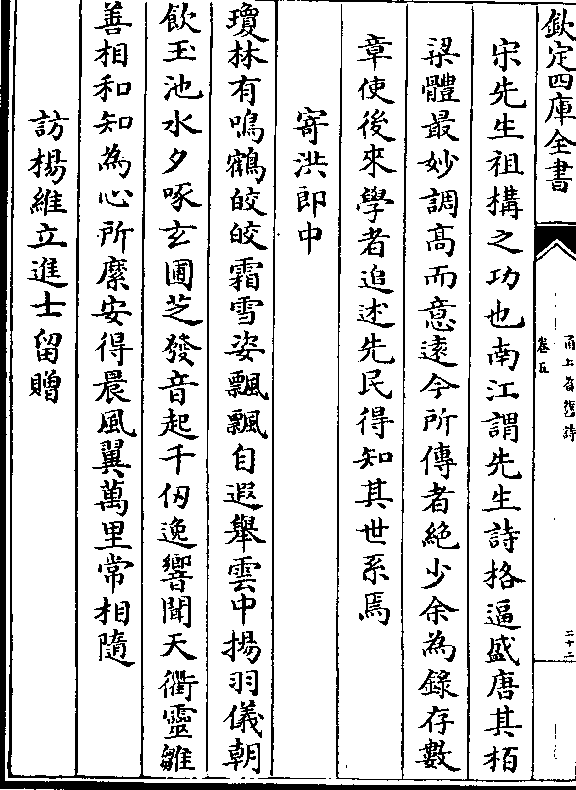 欽定四庫全書
甬上耆舊詩
卷五
二十二
宋先生祖構之功也南江謂先生詩格逼盛唐其栢
梁體最妙調髙而意逺今所傳者絶少余為錄存數
章使後來學者追述先民得知其世系焉
寄洪郎中
瓊林有鳴鶴皎皎霜雪姿飄飄自遐舉雲中揚羽儀朝
飲玉池水夕啄玄圃芝發音起千仭逸響聞天衢靈雛
善相和知為心所縻安得晨風翼萬里常相隨
訪楊維立進士留贈